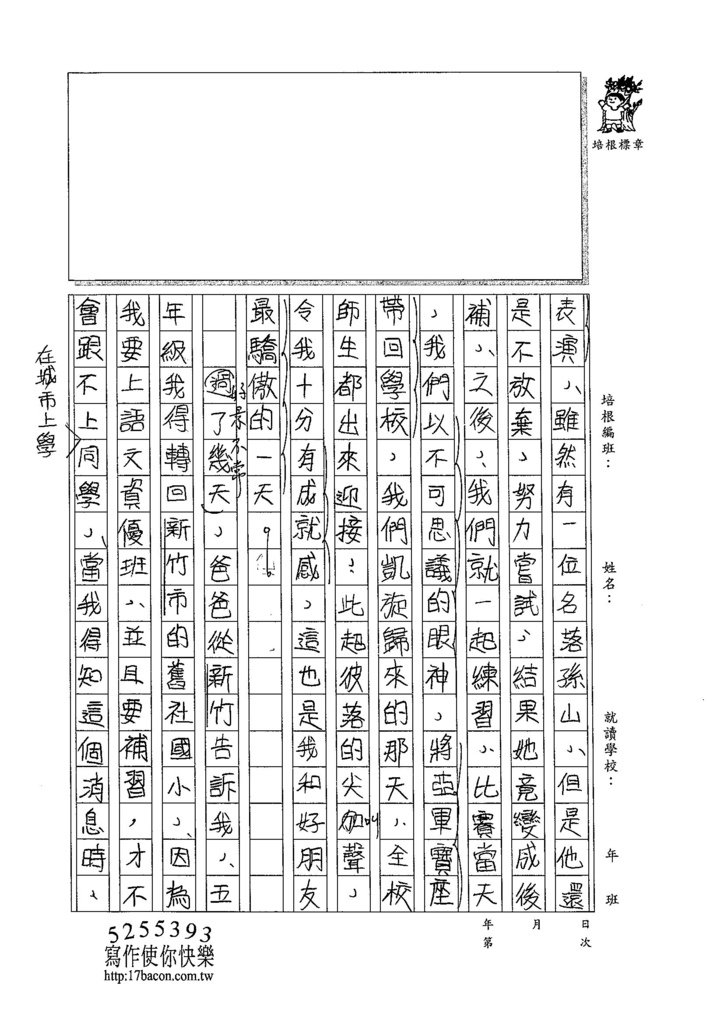 培根標章
培根編班：
姓名：
就讀學校：
年 班
年 月 日
第 次
表演，雖然有一位名落孫山，但是他還
是不放棄，努力嘗試，結果她竟變成後
補，之後，我們就一起練習，比賽當天
，我們以不可思議的眼神，將亞軍寶座
帶回學校，我們凱旋歸來的那天，全校
師生都出來迎接，此起彼落的尖叫聲，
令我十分有成就感，這也是我和好朋友
最驕傲的一天。
好景不常
過了幾天，爸爸從新竹告訴我，五
年級我得轉回新竹市的舊社國小，因為
我要上語文資優班，並且要補習，才不
會跟不上同學，當我得知這個消息時，
在城市上學
5255393
寫作使你快樂
http:17bacon.com.tw